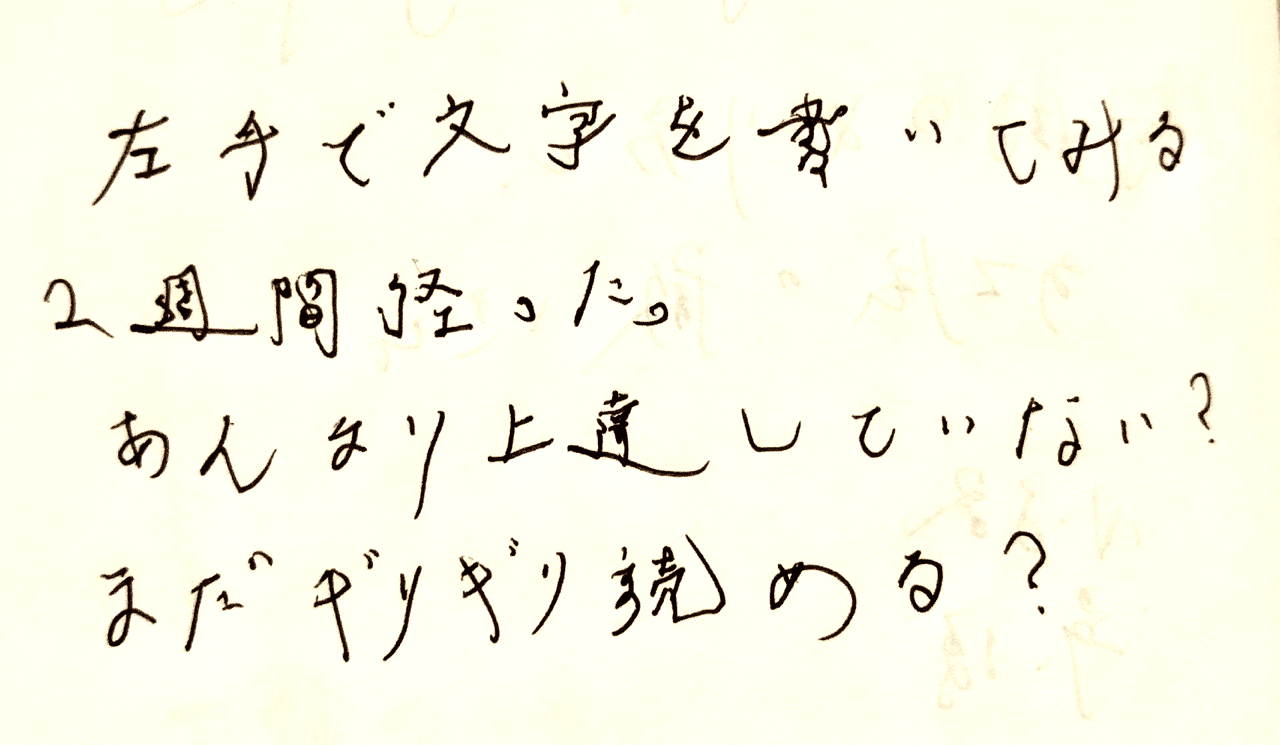 左手で文字を書いてみる
2週間経った。
あんまり上達していない?
まだギリギリ読める?